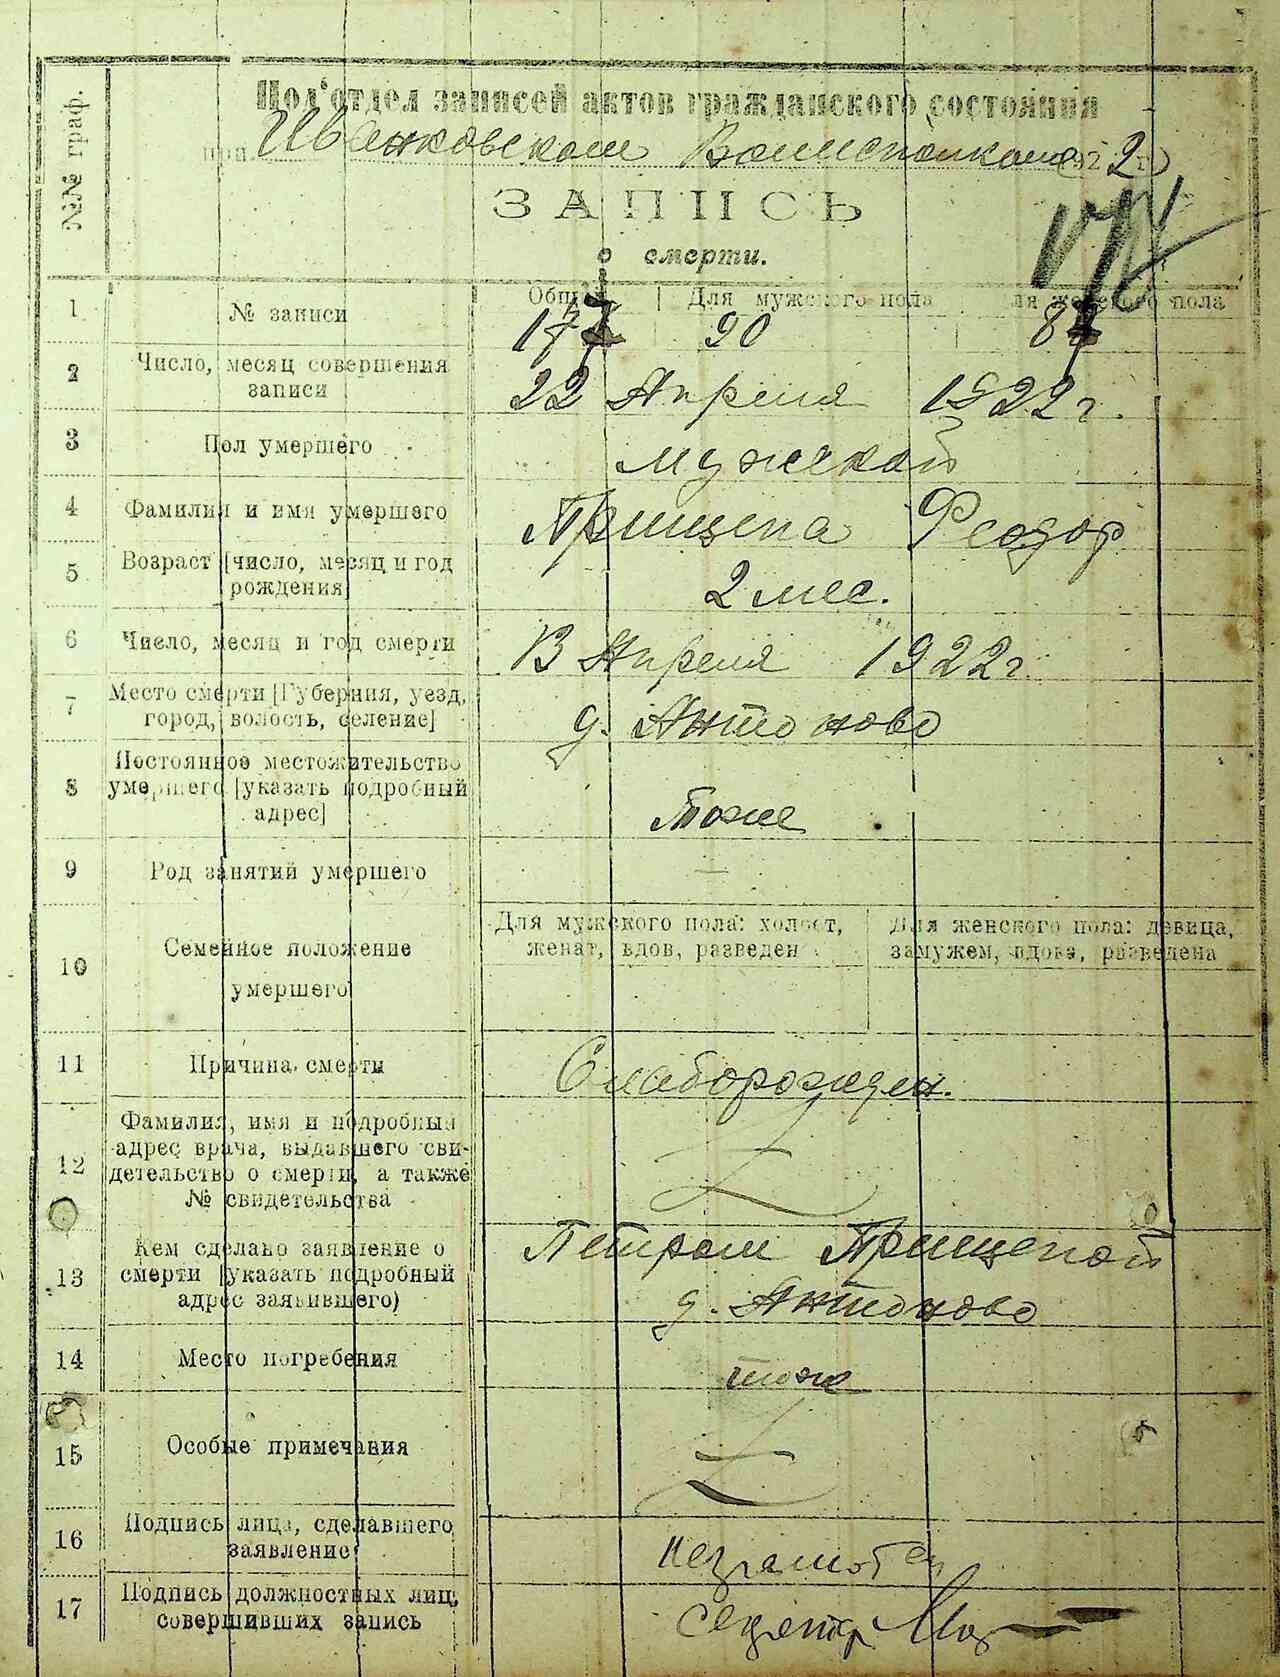 Под'отдел записей актов гражданского состояния
при Иванковском Волисполкоме (192 2 г.)
№№ граф.
ЗАПИСЬ
о смерти.
1 № записи
Общий Для мужского пола Для женского пола
17 90 8
2 Число, месяц совершения записи
22 Апреля 1922 г.
3 Пол умершего
мужской
4 Фамилия и имя умершего
Прищепа Феодор
5 Возраст [число, месяц и год рождения]
2 мес.
6 Число, месяц и год смерти
13 Апреля 1922 г.
7 Место смерти [Губерния, уезд, город, волость, селение]
д. Антоново
8 Постоянное местожительство умершего [указать подробный адрес]
тоже
9 Род занятий умершего
—
10 Семейное положение умершего
Для мужского пола: холост, женат, вдов, разведен
Для женского пола: девица, замужем, вдова, разведена
11 Причина смерти
Слаборожден.
12 Фамилия, имя и подробный адрес врача, выдавшего свидетельство о смерти, а также № свидетельства
13 Кем сделано заявление о смерти [указать подробный адрес заявившего)
Петром Прищепой
д. Антоново
14 Место погребения
тоже
15 Особые примечания
16 Подпись лица, сделавшего заявление
неграмотен
17 Подпись должностных лиц, совершивших запись
секретр